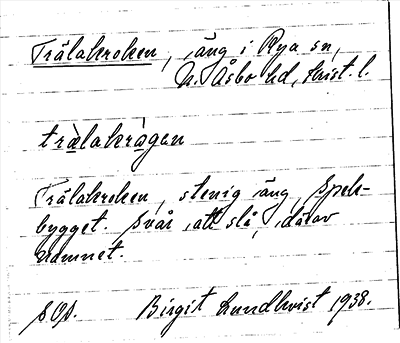 Trälakroken, äng i Rya sn,
N. Åsbo hd, Krist. l.
trälakrågen
Trälakroken, stenig äng, Spek-
bygget. Svår att slå, därav
namnet.
Birgit Lundkvist 1938.